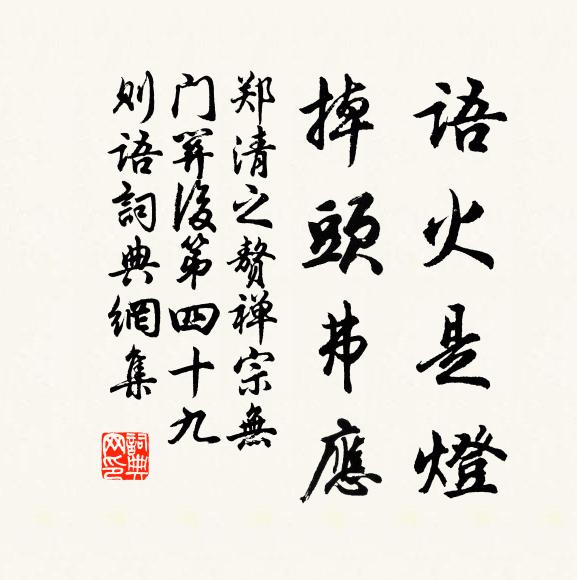 語火是燈
掉頭弗應
郑清之赘禅宗無
门關後第四十九
则語詞典網集
詞典网印